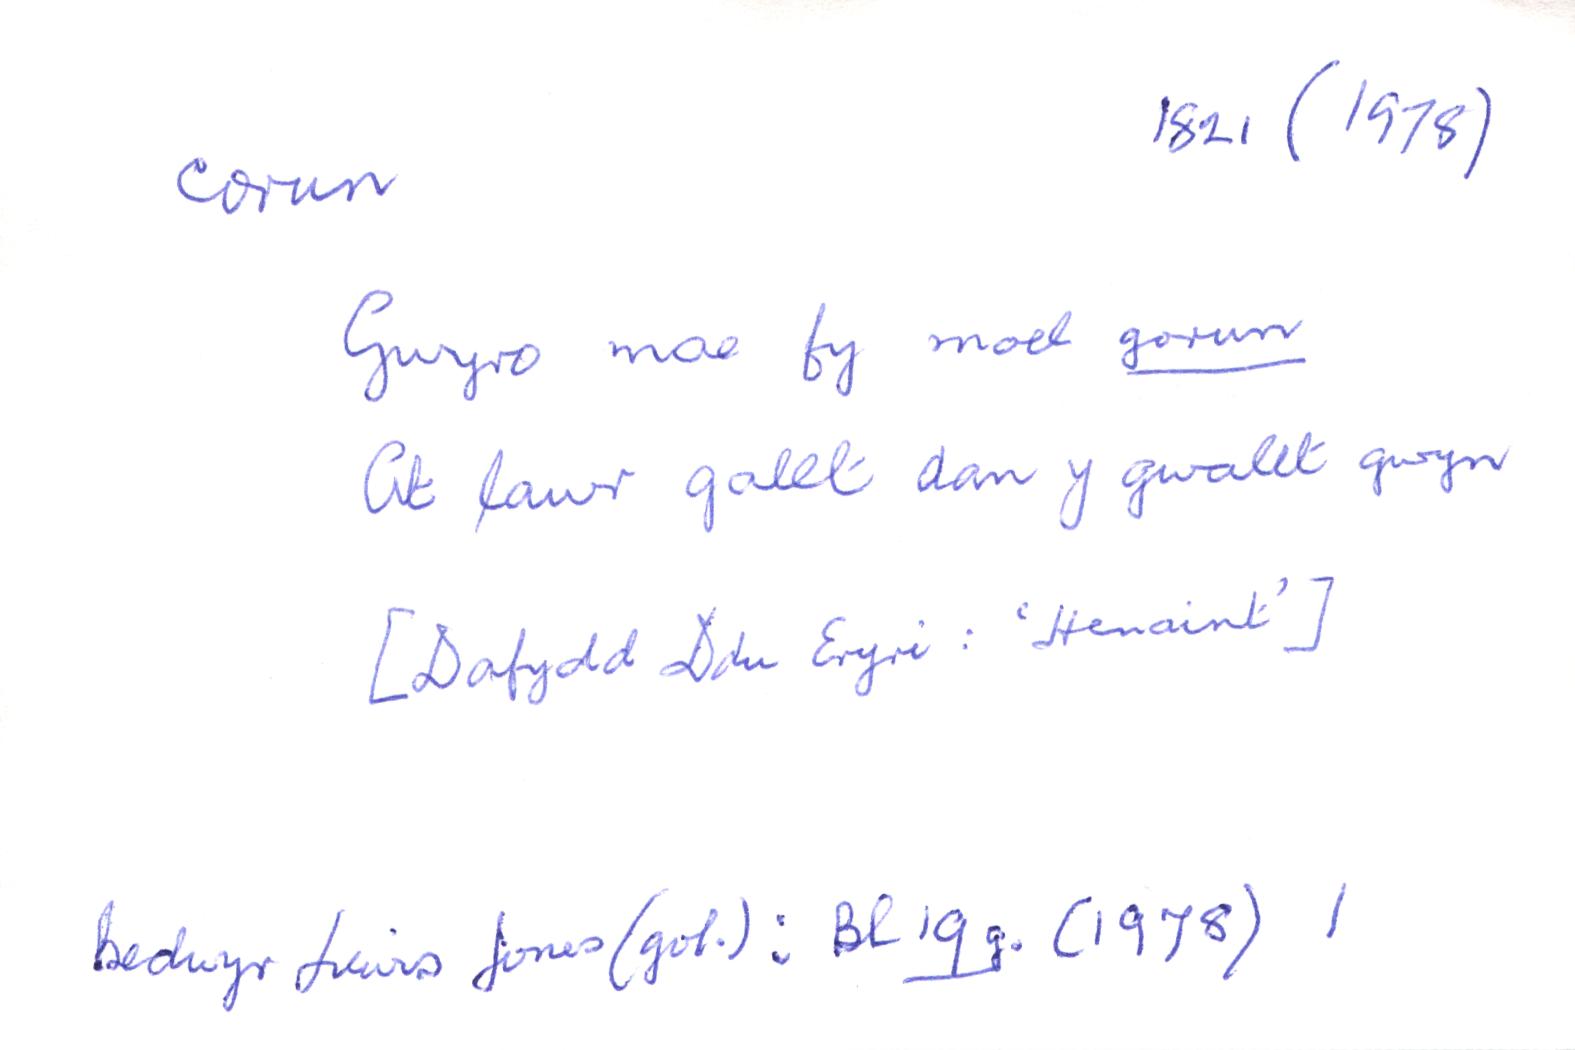 1821 (1978)
corun
Gwyro mae fy moel gorun
At lawr gallt dan y gwallt gwyn
[Dafydd Ddu Eryri : 'Henaint']
Bedwyr Lewis Jones (gol.) : Bl 19 g. (1978) 1